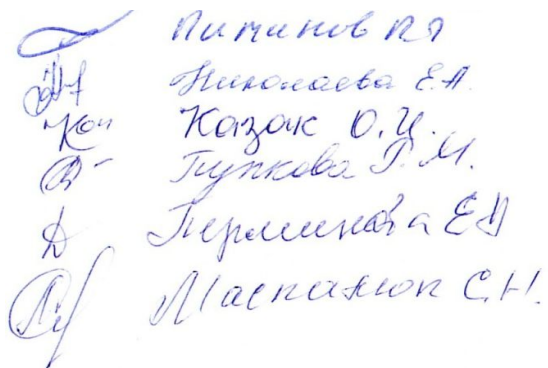 Пиминов П.Я
Николаева Е.А.
Казак О.И.
Пупкова Г.М.
Перминова Е.А
Маспанюк С.Н.